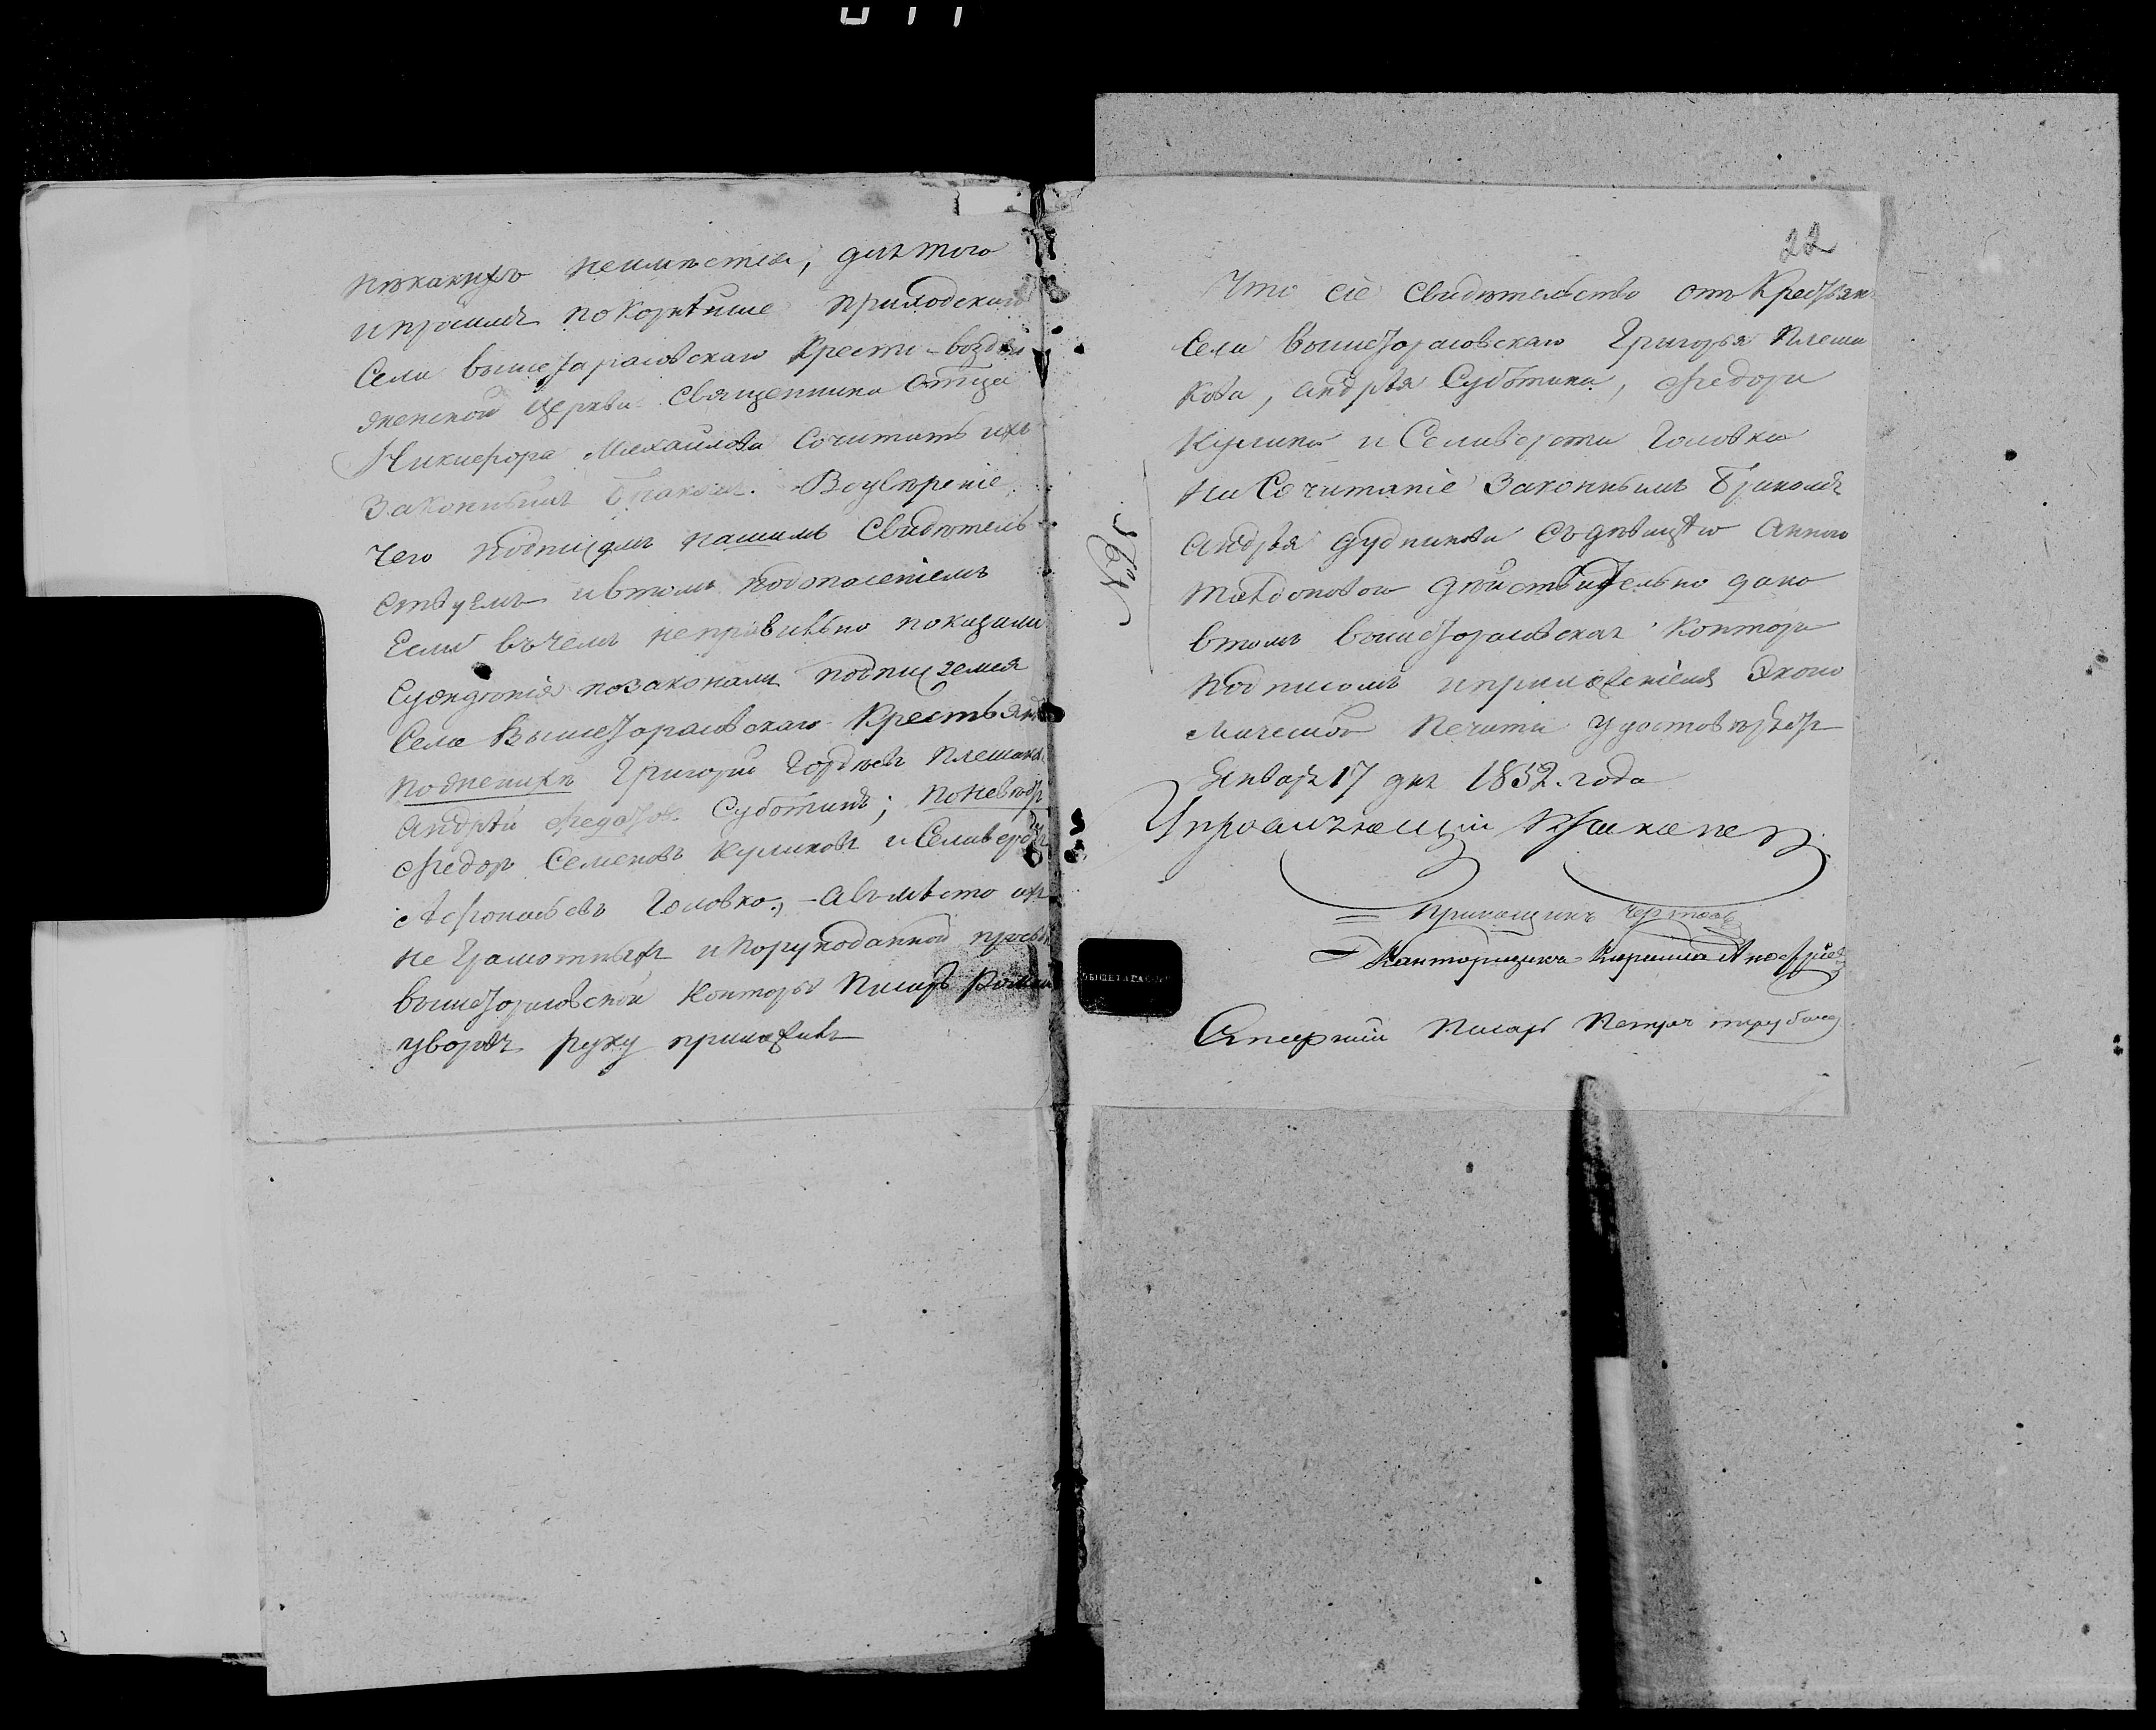 никакихъ неимѣется, для того
и просимъ покорнѣише приходскаго
Села вышетарасовскаго Кресто-воздви
женской Церкви Священника Отца
Никифора Михайлова Сочитать ихъ
Законнымъ бракомъ. Воувѣреніе
чего подписомъ нашимъ Свидѣтель
ствуемъ ивтомъ подополеніемъ
Если въчемъ неправильно показали
Сужденія позаконамъ подписуемся
Села Вышетарасовскаго Крестьяне
поженихѣ Григорій Гордѣевъ Плешако
Андрѣй Федоров Суботинъ; поневѣстѣ
Федоръ Семеновъ Куликовъ и Селиверстъ
Афонасьевъ Головко, – авмѣсто ихъ
неграмотныхъ и порукоданной прозьбы
вышетарасовской Конторы Писарь Роман
руку приложилъ
22
Что сіе свидѣтельство отъ Крестьян
Села вышетарасовскаго Григорья Плеша
кова, Андрѣя Суботина, Федора
Кулика и Селиверста Головка
на Сочитаніе Законнымъ бракомъ
Андрѣя Дудникова съ дѣвицею Анною
дѣйствительно дано
втомъ вышетарасовская Контора
подписомъ иприложеніемъ Эконо
мической Печати удостовѣряетъ
Январь 17 дня 1852. года
№ 91
Управляющій
Прикащикъ
Канторщикъ Кирилла
Писарь Петръ
ВЫШЕТАРАСОВ